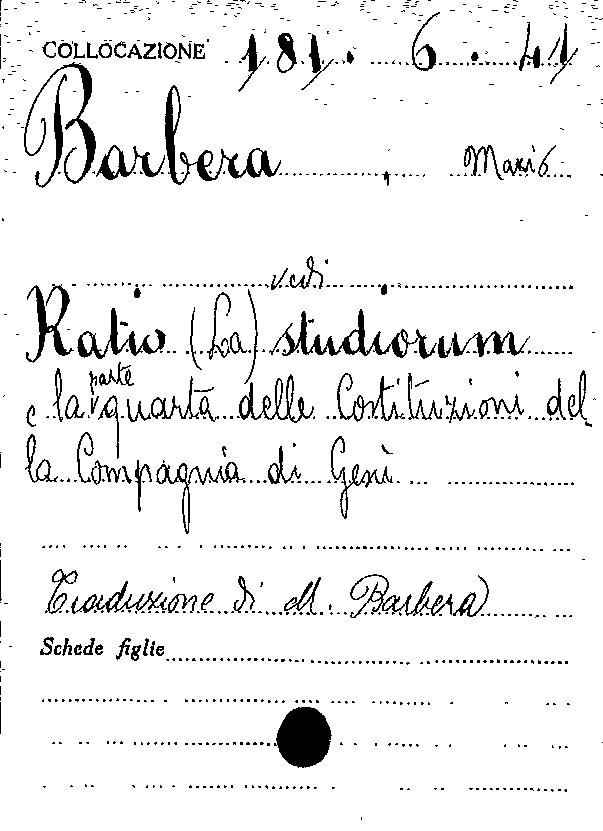 COLLOCAZIONE 181. 6. 41
Barbera, Mario
vedi
Ratio (La) studiorum
e la parte quarta delle Costituzioni del-
la Compagnia di Gesù
Traduzione di M. Barbera
Schede figlie